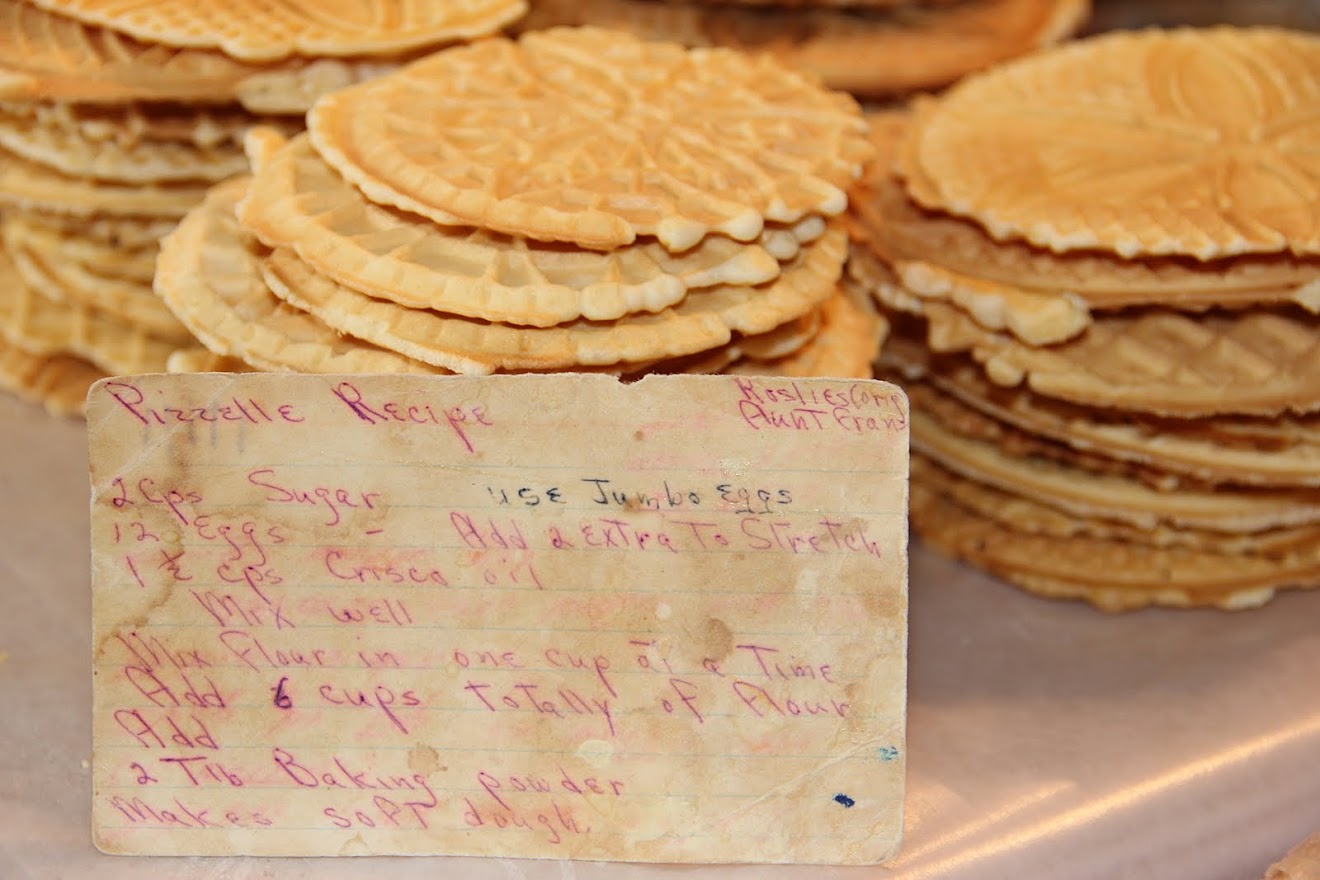 Pizzelle Recipe
Aunt Fran
2 cps Sugar use Jumbo Eggs
12 Eggs - Add 2 extra To Stretch
1 ½ cps Crisco oil
Mix well
Mix Flour in one cup at a Time
Add 6 cups totally of Flour
Add
2 Tlb Baking powder
Makes soft dough.